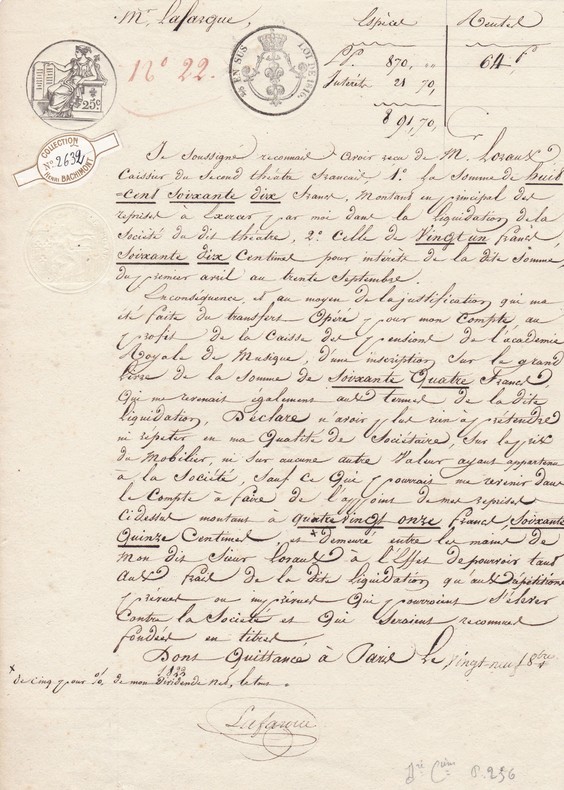 Mr. Lafargue,
Espèces
Rentes
pp. 870, 00
64 f
Interêts 21 70,
891,70,
No 22.
25c
EN SUS
LOI DE 1816
COLLECTION
No 2632
HENRI BACHIMONT
Je soussigné reconnais avoir reçu de M. Loraux
Caissier du Second théatre francais 1o. La Somme de huit
=cent Soixante dix francs, Montant en principal des
reprises à Exercer par moi dans la liquidation de la
Société du dit théatre, 2o. Celle de Vingt un francs
Soixante dix Centimes pour intérets de la dite Somme
du premier avril au trente Septembre.
En conséquence, et au moyen de la justification qui m'a
été faite du transfert Opéré pour mon Compte au
profit de la Caisse des pensions de l'académie
Royale de Musique, d'une inscription sur le grand
Livre de la Somme de Soixante Quatre francs,
Qui me revenait également aux termes de la dite
liquidation, Déclare n'avoir plus rien à prétendre
ni repeter en ma Qualité de Sociétaire, Sur le prix
du Mobilier, ni Sur aucune autre Valeur ayant appartenu
à la Société, Sauf ce Qui pourrais me revenir dans
le Compte à faire de l'appoint de mes reprises
Ci dessus montant à quatre vingt onze francs Soixante
Quinze Centimes, + et demeuré entre les mains de
Mon dit Sieur Loraux à l'Effet de pourvoir tant
aux frais de la dite liquidation qu'aux répétitions
prévues ou imprévues Qui pourroient S'élever
Contre la Société et Qui seraient reconnues
fondées en titres
Dont Quittance à Paris Le vingt neuf 8bre
1822
+ de Cinq pour %, de mon Dividende net,
Lafargue
P. 256